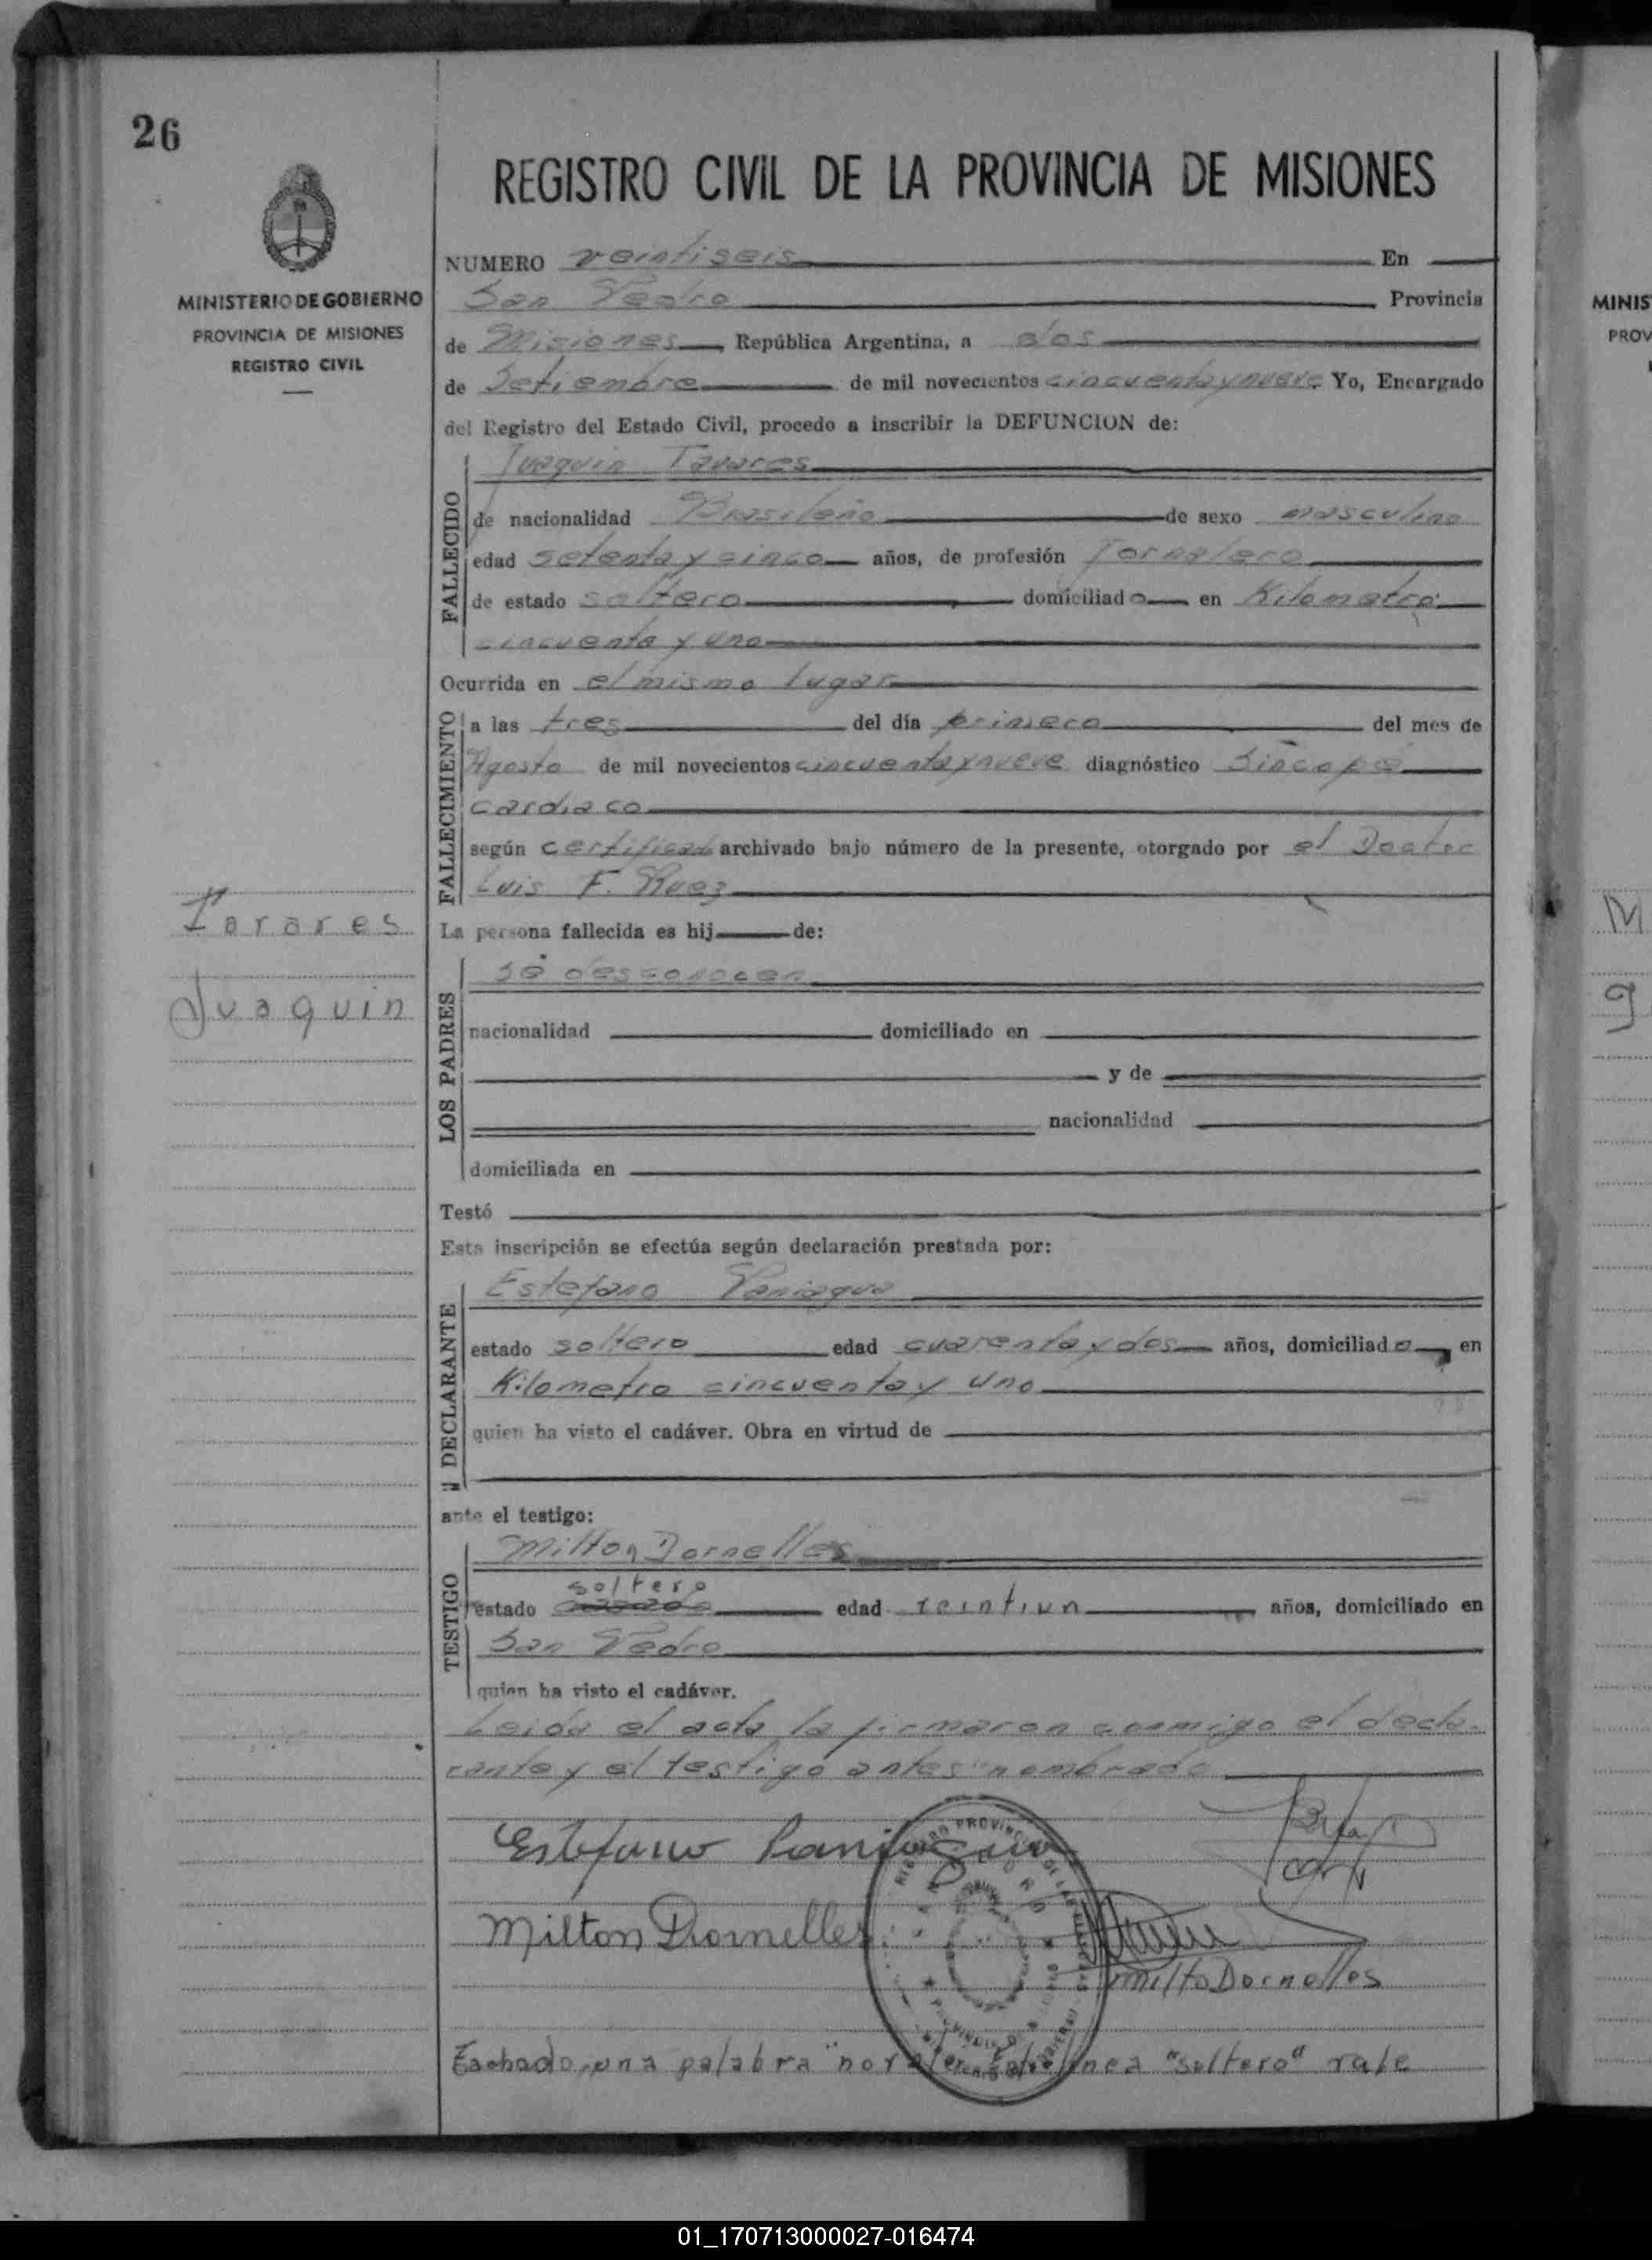 26
REGISTRO CIVIL DE LA PROVINCIA DE MISIONES
MINISTERIO DE GOBIERNO
PROVINCIA DE MISIONES
REGISTRO CIVIL
NUMERO veintiseis En
San Pedro Provincia
de Misiones República Argentina, a dos
de Setiembre de mil novecientos cincuenta y nueve Yo, Encargado
del Registro del Estado Civil, procedo a inscribir la DEFUNCION de:
FALLECIDO
Juaquin Tavares
de nacionalidad Brasileño de sexo masculino
edad setenta y cinco años, de profesión Jornalero
de estado soltero domiciliado en Kilometro
cincuenta y uno
Ocurrida en el mismo lugar
FALLECIMIENTO
a las tres del día primero del mes de
Agosto de mil novecientos cincuenta y nueve diagnóstico Sincope
cardiaco
según certificado archivado bajo número de la presente, otorgado por el Doctor
Luis F. Ruez
Tavares
Juaquin
La persona fallecida es hij de:
LOS PADRES
se desconocen
nacionalidad domiciliado en
y de
nacionalidad
domiciliada en
Testó
Esta inscripción se efectúa según declaración prestada por:
DECLARANTE
Estefano Paniagua
estado soltero edad cuarenta y dos años, domiciliado en
Kilometro cincuenta y uno
quien ha visto el cadáver. Obra en virtud de
ante el testigo:
TESTIGO
Milton Dornelles
soltero
estado casado edad veintiun años, domiciliado en
San Pedro
quien ha visto el cadáver.
Leida el acta la firmaron conmigo el decla-
rante y el testigo antes nombrado
Estefano Paniagua
Milton Dornelles
Milto Dornelles
Tachado una palabra "no vale" Entre linea "soltero" vale
MINIS
PROV
01_170713000027-016474